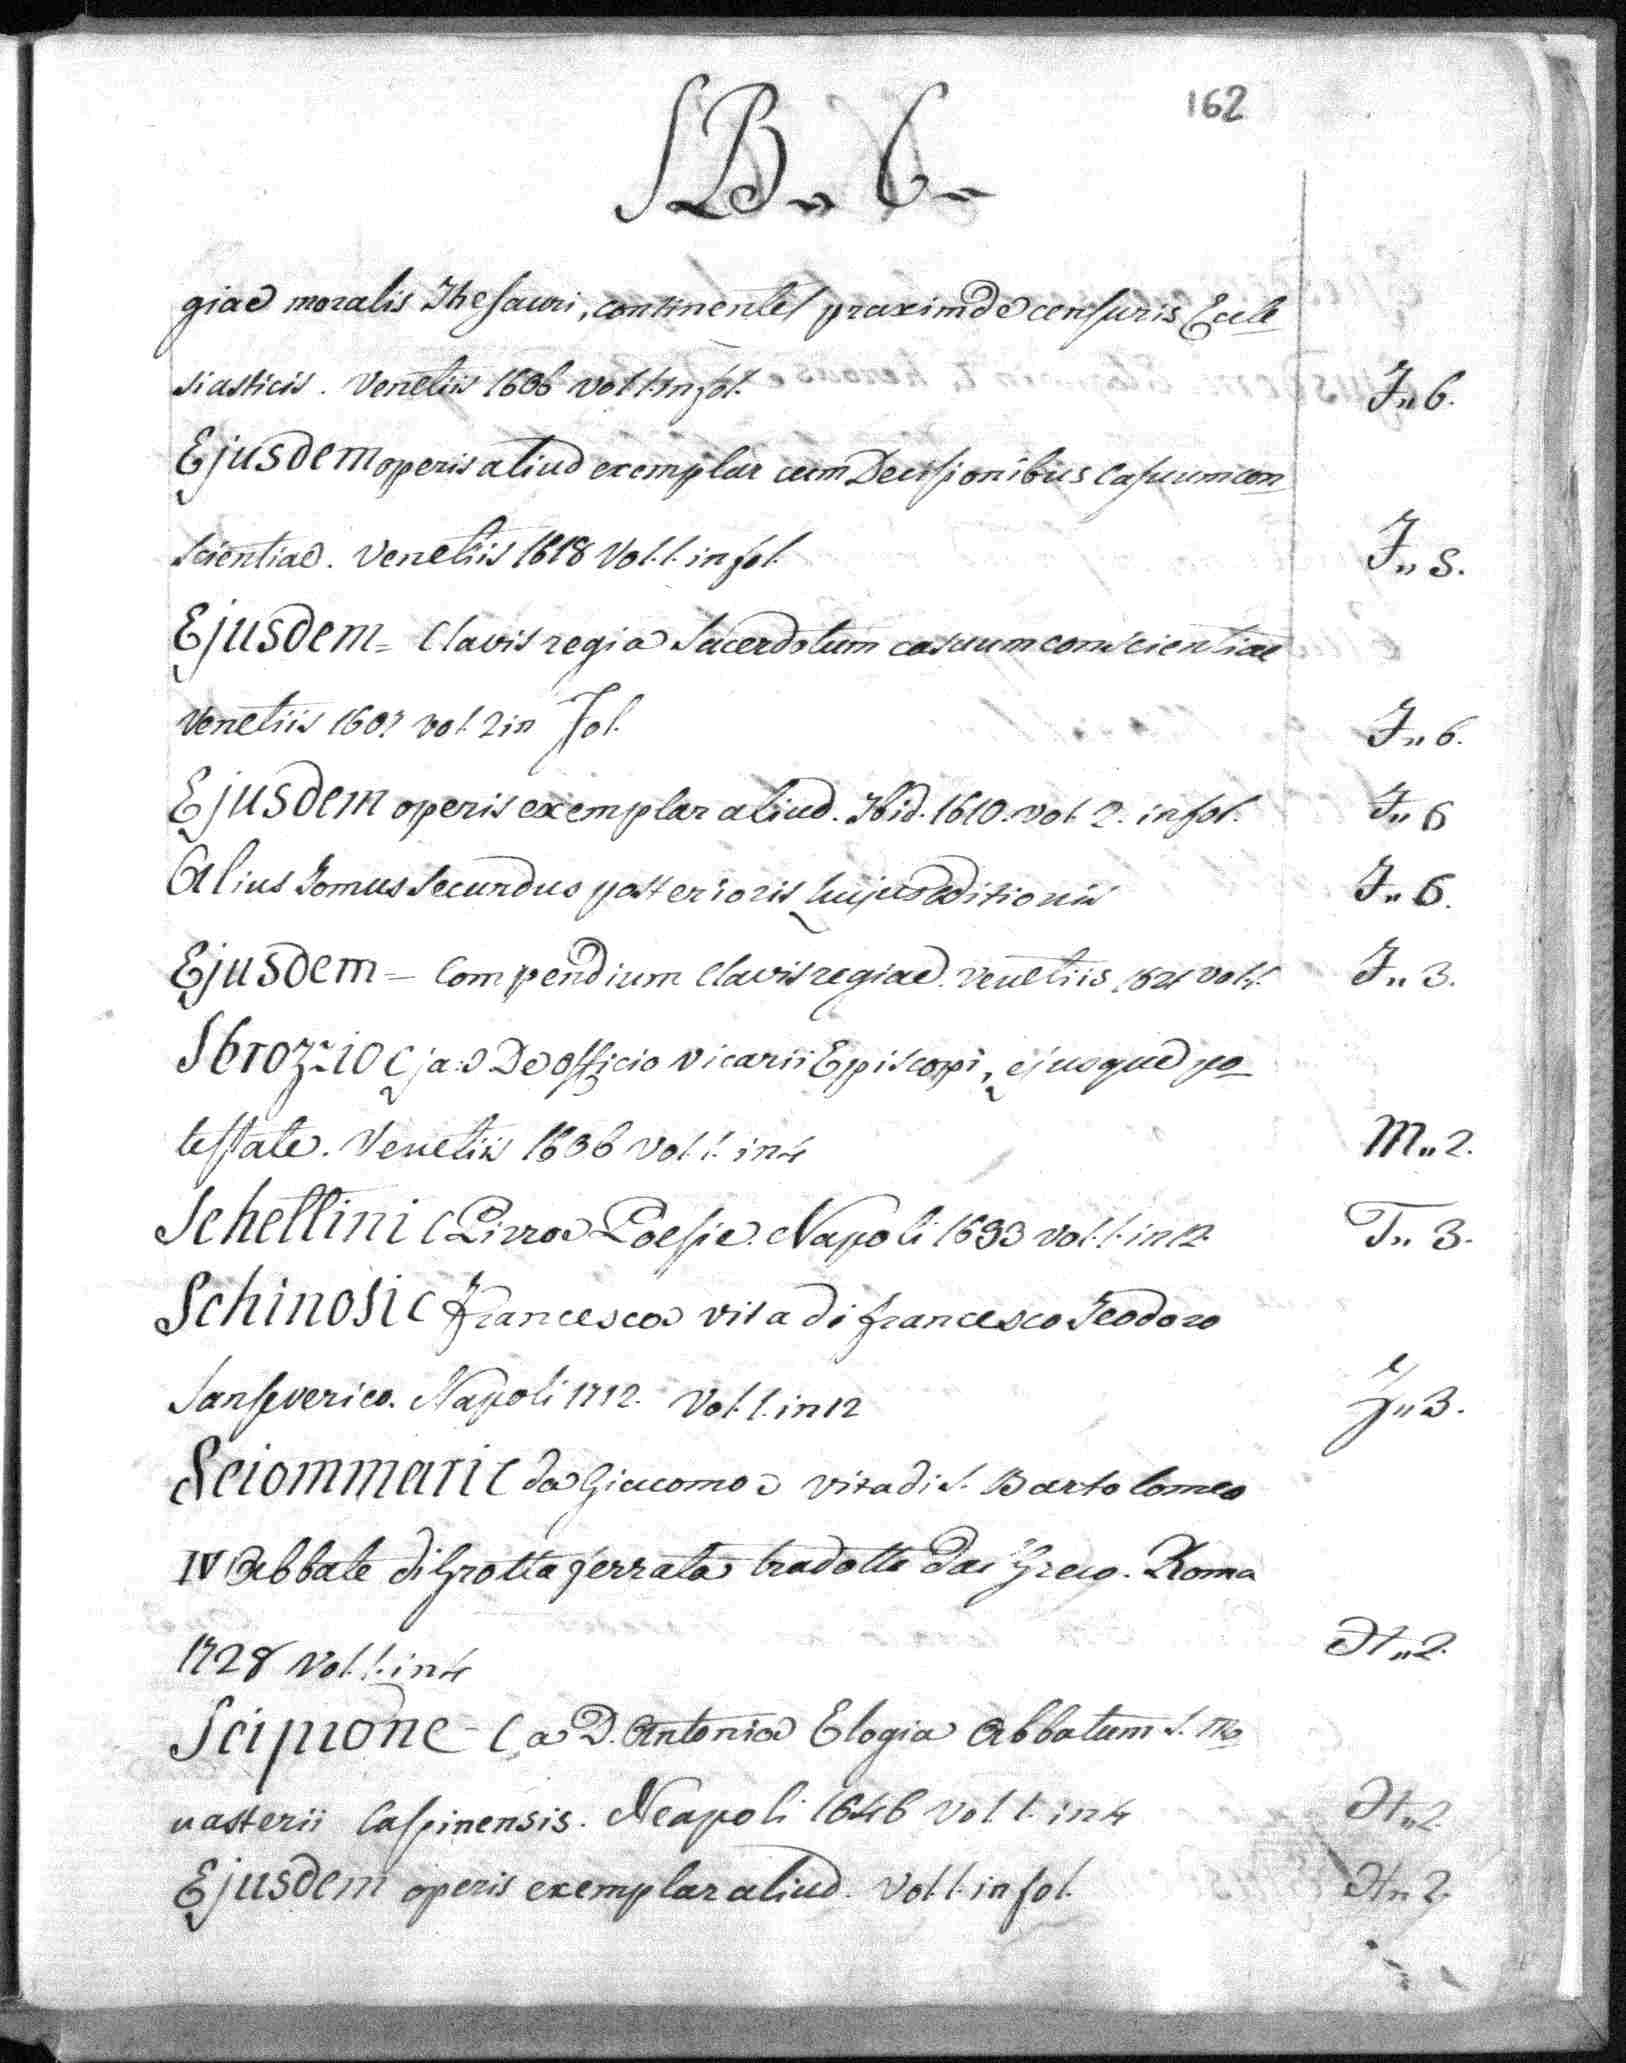 162
SB„ 6„
giae moralis Thesauri, continentes praximde censuris Eccle
siasticis. Venetiis 1606 vol. 1. in fol.
J„ 6.
Ejusdem operis aliud exemplar cum Decisionibus Casuum con
scientiae. Venetiis 1618 Vol. 1. in fol.
J„ 5.
Ejusdem = Clavis regia Sacerdotum casuum conscientiae
Venetiis 1607 vol. 2 in Fol.
J„ 6.
Ejusdem operis exemplar aliud. Ibid. 1610. vol. 2. in fol. J„ 6
Alius Tomus Secundus posterioris hujus editionis J„ 6.
Ejusdem = Compendium Clavis regiae. Venetiis 1621 vol. 1. J„ 3.
Sbrozzio (Ja:) De officio vicarii Episcopi, ejusque po
testate. Venetiis 1636 Vol. 1. in 4 M„ 2.
Schettini (Pirro) Poesie. Napoli 1693 vol. 1. in 12. T„ 3.
Schinosi (Francesco) vita di francesco Teodoro
Sanseverico. Napoli 1712. Vol. 1. in 12
„ 3.
Sciommari (da Giacomo) vita di S. Bartolomeo
IV Abbate di Grotta ferrata tradotta dal Greco. Roma
1728 vol. 1. in 4
H„ 2.
Scipione (a D. Antonio) Elogia Abbatum S. Mo
nasterii Casinensis. Neapoli 1646 vol. 1. in 4 H„ 2.
Ejusdem operis exemplar aliud. Vol. 1. in fol. H„ 2.